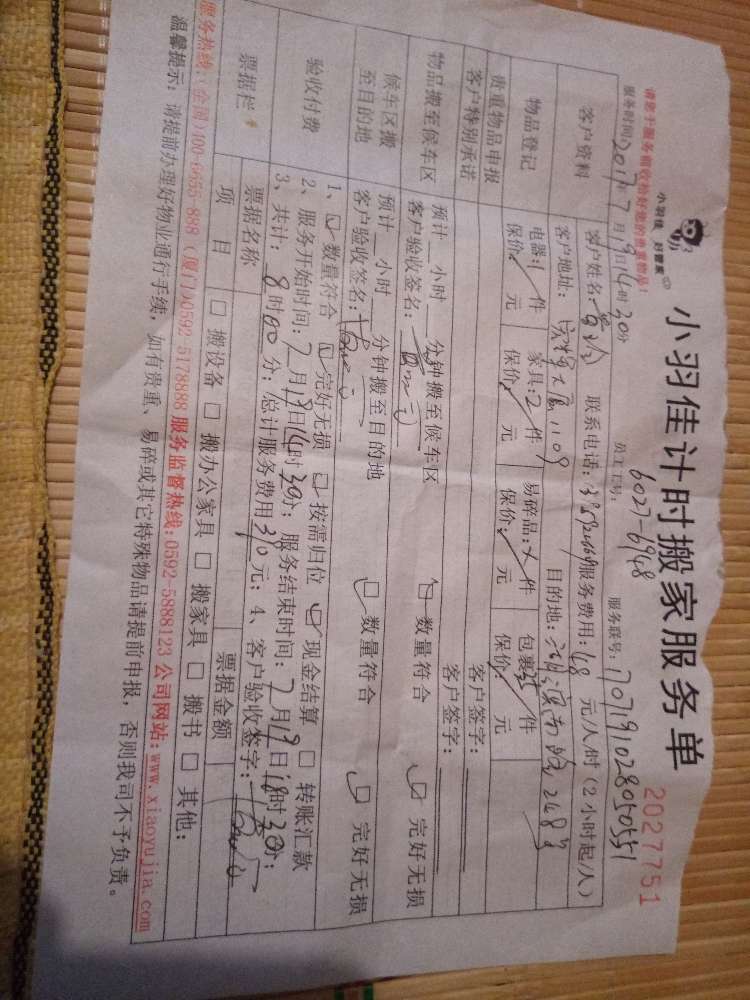 小羽佳 好管家
小羽佳计时搬家服务单
2027751
请您于服务前收捡好您的贵重物品!
员工工号: 6027-6948
服务联号: 1707191028050551
服务时间: 2017年7月19日14时30分
客户资料
客户姓名: 联系电话: 服务费用: 48 元/人/时 (2小时起/人)
客户地址: 1109 目的地: 248号
物品登记
电器: 1件 家具: 2件 易碎品: 件 包裹: 件
保价: 元 保价: 元 保价: 元 保价: 元
贵重物品申报 客户签字:
客户特别承诺 客户签字:
物品搬至候车区
预计 小时 分钟搬至候车区
客户验收签名: 数量符合 完好无损
候车区搬至目的地
预计 小时 分钟搬至目的地
客户验收签名: 数量符合 完好无损
验收付费
1、数量符合 完好无损 按需归位 现金结算 转账汇款
2、服务开始时间: 7月19日14时30分; 服务结束时间: 7月19日18时30分;
3、共计: 8时00分; 总计服务费用 390 元; 4、客户验收签字:
票据栏
票据名称 票据金额
项目 搬设备 搬办公家具 搬家具 搬书 其他:
服务热线: (全国)400-6655-888 (厦门)0592-5178888 服务监督热线: 0592-5888123 公司网站: www.xiaoyujia.com
温馨提示: 请提前办理好物业通行手续, 如有贵重、易碎或其它特殊物品请提前申报, 否则我司不予负责。